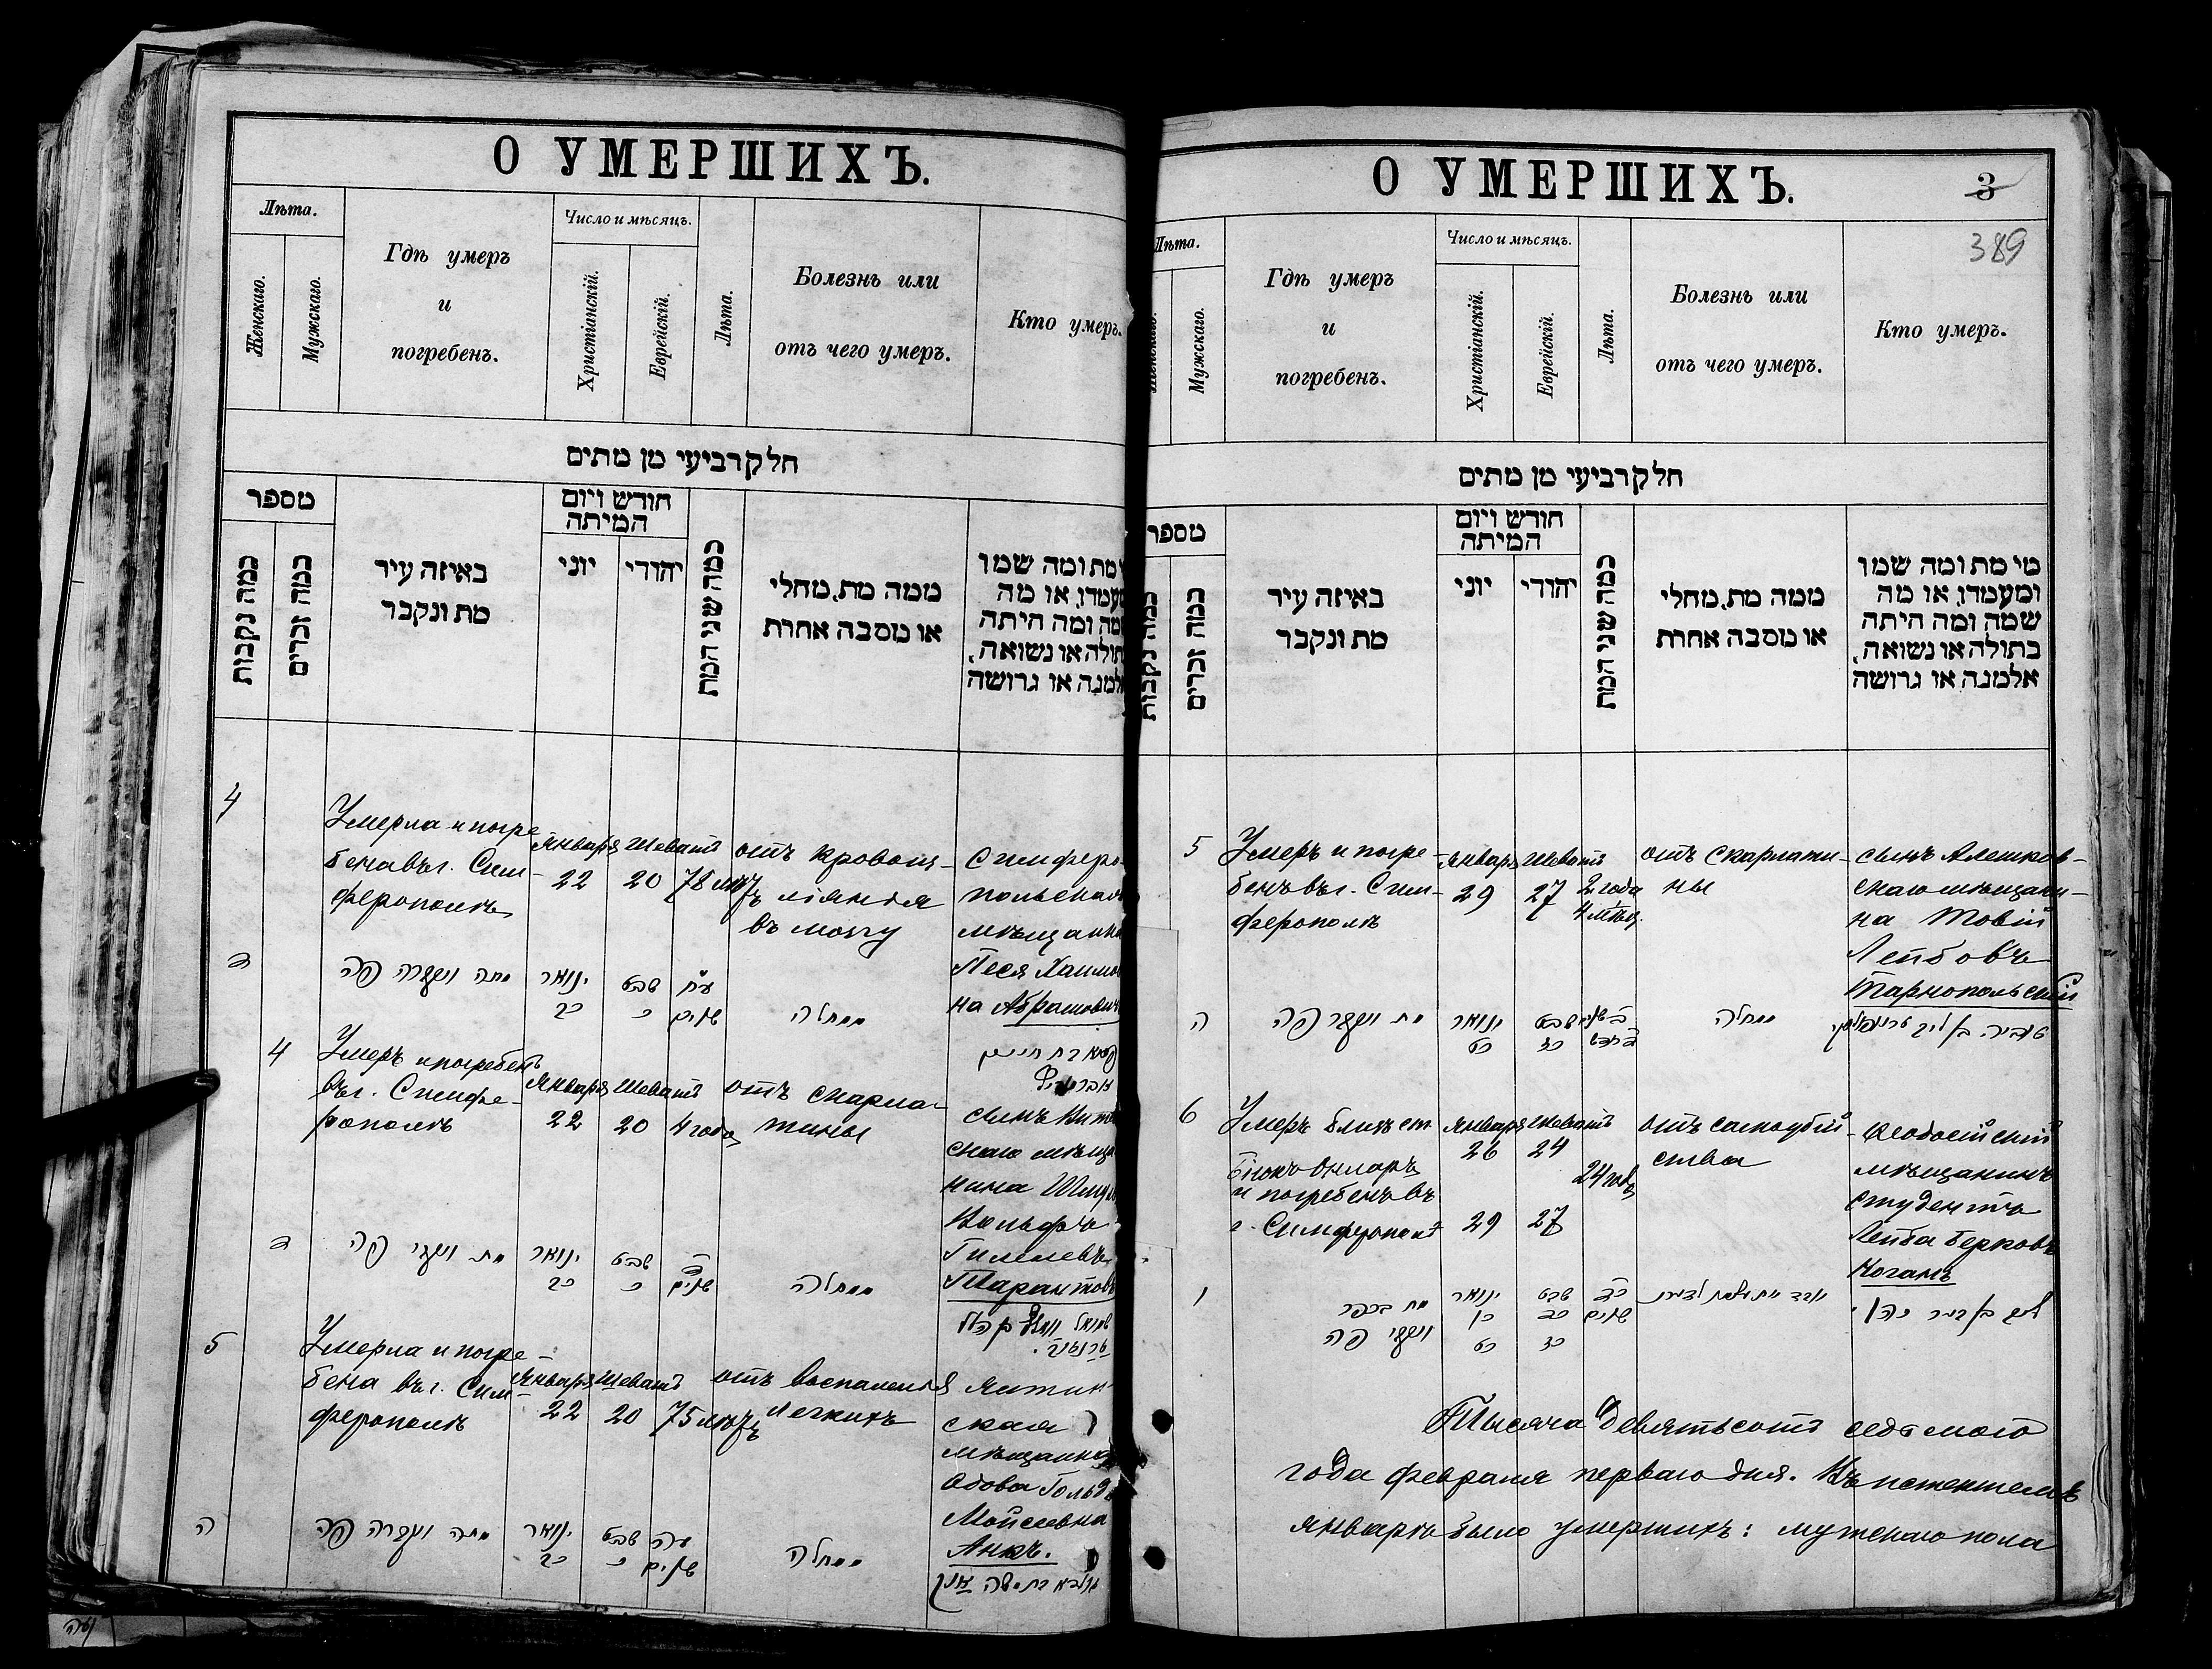 О УМЕРШИХЪ.
Лѣта.
Женскаго.
Мужскаго.
Гдѣ умеръ
и
погребенъ.
Число и мѣсяцъ.
Христіанскій.
Еврейскій.
Лѣта.
Болезнь или
отъ чего умеръ.
Кто умеръ.
חלק רביעי מן מתים
מספר
כמה נקבות
כמה זכרים
באיזה עיר
מת ונקבר
חודש ויום
המיתה
יוני
יהודי
כמה שני המת
ממה מת, מחלי
או מסבה אחרת
מת ומה שמו
או מה
ומה היתה
או נשואה,
או גרושה
4
Умерла и погре
бена въ г. Сим-
ферополѣ
Января
22
Шеватъ
20
78 лѣтъ
отъ кровоиз-
ліянія
въ мозгу
Симферо-
польская
мѣщанка
Песя Хаимов
на Абрамович
ד
מתה ונקברה פה
ינואר
כב
שבט
כ
עח
שנים
ממחלה
4
Умеръ и погребенъ
въ г. Симфе-
рополѣ
Января
22
Шеватъ
20
4 года
отъ скарла-
тины
сынъ
скаго мѣща
нина
Вольфъ
Гиллевъ
ד
מת ונקבר פה
ינואר
כב
שבט
כ
ד
שנים
ממחלה
5
Умерла и погре-
бена въ г. Сим-
ферополѣ
Января
22
Шеватъ
20
75 лѣтъ
отъ воспаленія
легкихъ
ская
мѣщанка
вдова Гольда
Мойсеевна
Анкъ.
ה
מתה ונקברה פה
ינואר
כב
שבט
כ
עה
שנים
ממחלה
גולדא בת משה אנק
О УМЕРШИХЪ.
3
389
Лѣта.
Женскаго.
Мужскаго.
Гдѣ умеръ
и
погребенъ.
Число и мѣсяцъ.
Христіанскій.
Еврейскій.
Лѣта.
Болезнь или
отъ чего умеръ.
Кто умеръ.
חלק רביעי מן מתים
מספר
כמה נקבות
כמה זכרים
באיזה עיר
מת ונקבר
חודש ויום
המיתה
יוני
יהודי
כמה שני המת
ממה מת, מחלי
או מסבה אחרת
מי מת ומה שמו
ומעמדו, או מה
שמה ומה היתה
בתולה או נשואה,
אלמנה או גרושה
5
Умеръ и погре-
бенъ въ г. Сим-
ферополѣ
Января
29
Шеватъ
27
2 года
4 мѣсц.
отъ скарлати-
ны
сынъ Алешков-
скаго мѣщани-
на Товій
Лейбовъ
Тарнопольскій
ה
מת ונקבר פה
ינואר
כט
שבט
כז
ממחלה
טוביה בן ליב טרנאפאלסקי
6
Умеръ близъ ст.
Біюкъ-Онларъ
и погребенъ въ
г. Симферополѣ
Января
26
29
Шеватъ
24
27
24 года
отъ самоубій-
ства
Ѳеодосійскій
мѣщанинъ
студентъ
Лейба Берковъ
Коганъ
ו
מת בכפר
ונקבר פה
ינואר
כו
כט
שבט
כד
כז
כד
שנים
ליב בן בער כהן.
Тысяча девятьсотъ седьмого
года февраля перваго дня. Въ истекшемъ
январѣ было умершихъ: мужскаго пола